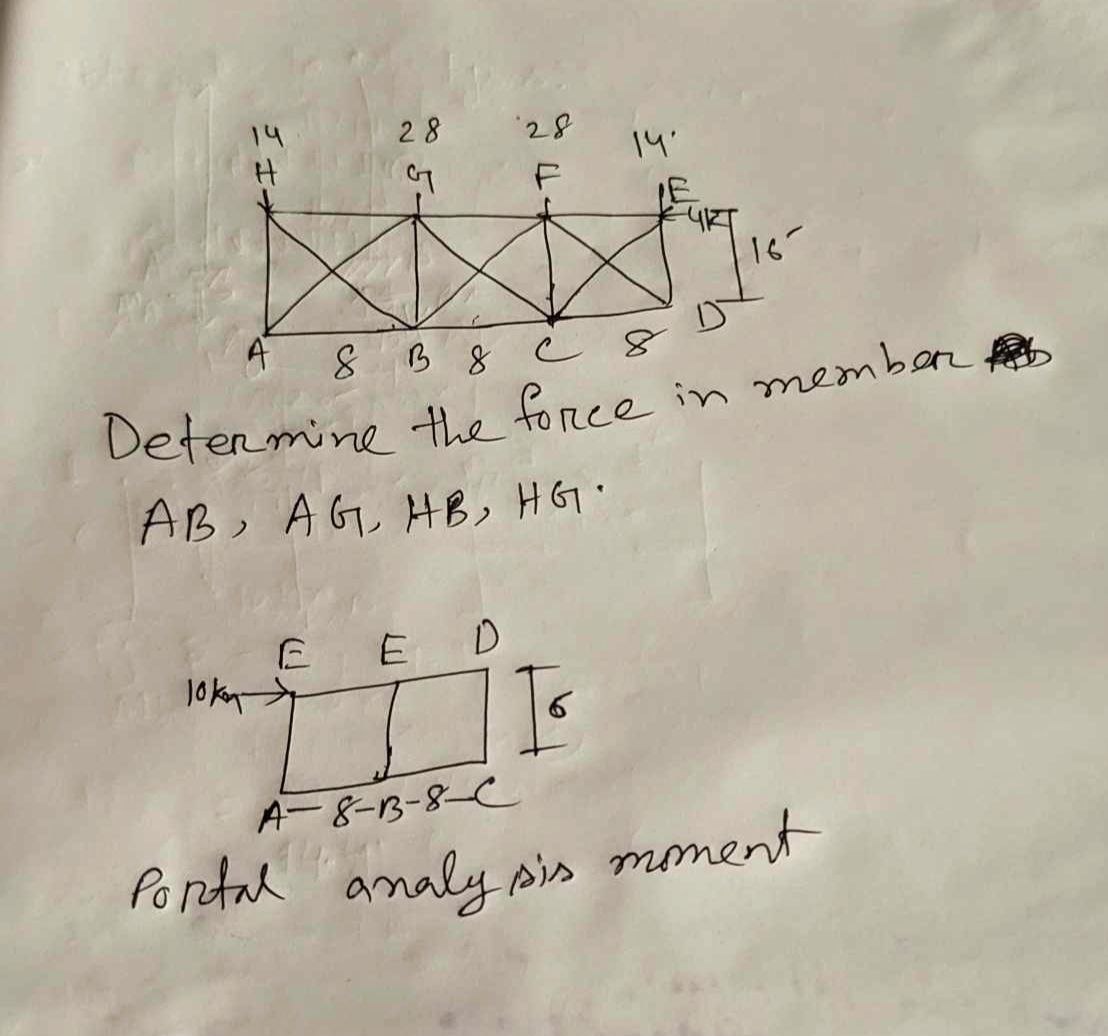 14 28 28 14
H G F E
4k
16
A 8 B 8 C 8 D
Determine the force in member
AB, AG, HB, HG.
E E D
10kn
6
A-8-B-8-C
Portal analysis moment